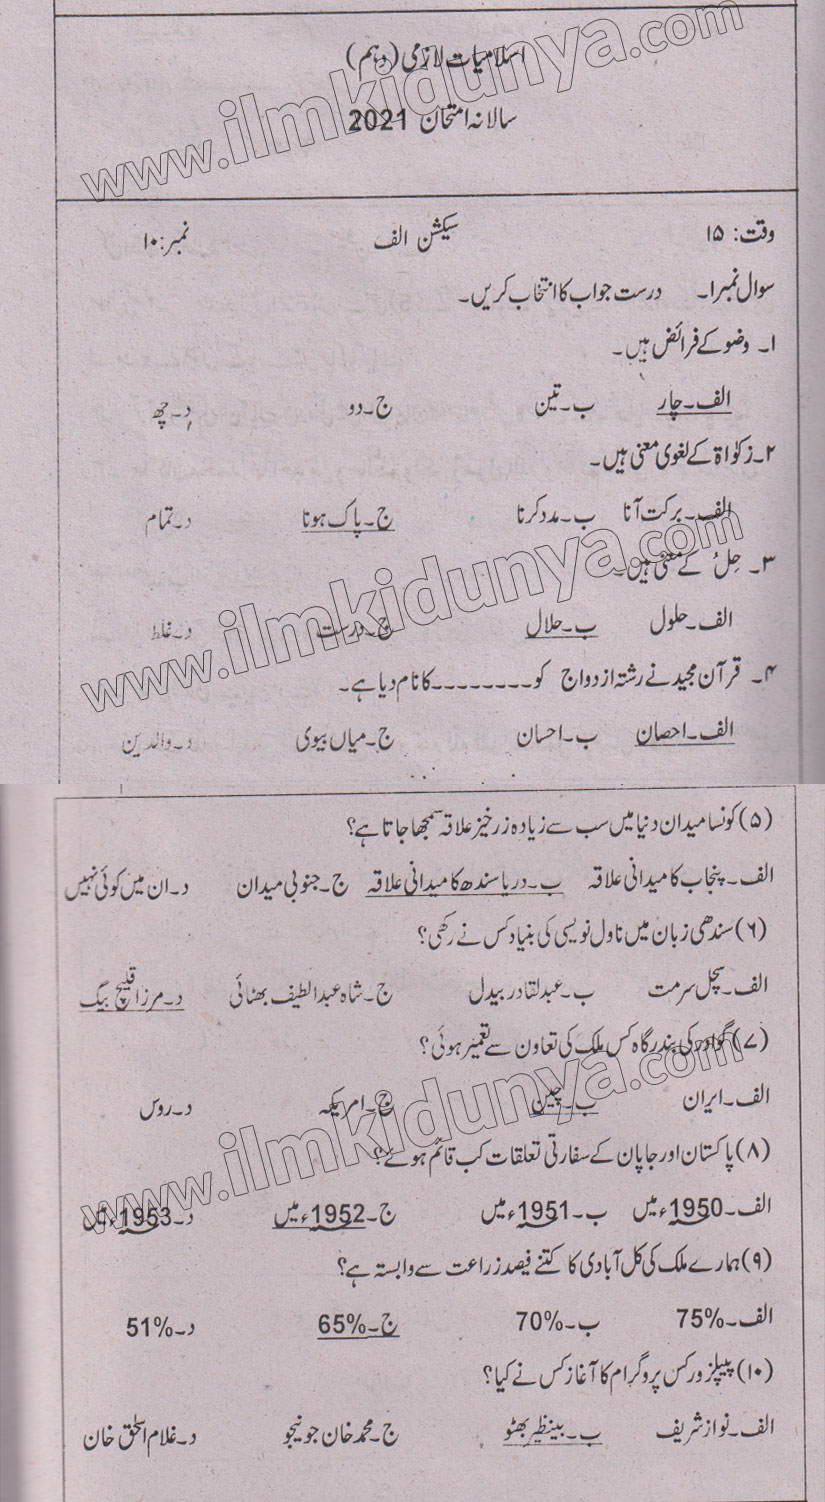 اسلامیات لازمی (دہم)
سالانہ امتحان 2021
وقت: ۱۵ سیکشن الف نمبر:۱۰
سوال نمبر۱۔ درست جواب کا انتخاب کریں۔
۱۔ وضو کے فرائض ہیں۔
الف۔چار ب۔تین ج۔دو د۔چھ
۲۔زکوٰاۃ کے لغوی معنی ہیں۔
الف۔برکت آنا ب۔مدد کرنا ج۔پاک ہونا د۔تمام
۳۔ حِلُ کے معنی ہیں۔
الف۔حلول ب۔حلال ج۔درست د۔غلط
۴۔ قرآن مجید نے رشتہ ازدواج کو۔۔۔۔۔۔۔۔کا نام دیا ہے۔
الف۔احصان ب۔احسان ج۔میاں بیوی د۔والدین
(۵) کونسا میدان دنیا میں سب سے زیادہ زرخیز علاقہ سمجھا جاتا ہے؟
الف۔پنجاب کا میدانی علاقہ ب۔دریا سندھ کا میدانی علاقہ ج۔جنوبی میدان د۔ان میں کوئی نہیں
(۶) سندھی زبان میں ناول نویسی کی بنیاد کس نے رکھی؟
الف۔سچل سرمت ب۔عبدلقادر بیدل ج۔شاہ عبدالطیف بھٹائی د۔مرزا قلیچ بیگ
(۷) گوادر کی بندرگاہ کس ملک کی تعاون سے تعمیر ہوئی؟
الف۔ایران ب۔چین ج۔امریکہ د۔روس
(۸) پاکستان اور جاپان کے سفارتی تعلقات کب قائم ہوئے؟
الف۔1950ء میں ب۔1951ء میں ج۔1952ء میں د۔1953ء میں
(۹) ہمارے ملک کی کل آبادی کا کتنے فیصد زراعت سے وابستہ ہے؟
الف۔75% ب۔70% ج۔65% د۔51%
(۱۰) پیپلز ورکس پروگرام کا آغاز کس نے کیا؟
الف۔نواز شریف ب۔بینظیر بھٹو ج۔محمد خان جونیجو د۔غلام اسحٰق خان
www.ilmkidunya.com
www.ilmkidunya.com
www.ilmkidunya.com